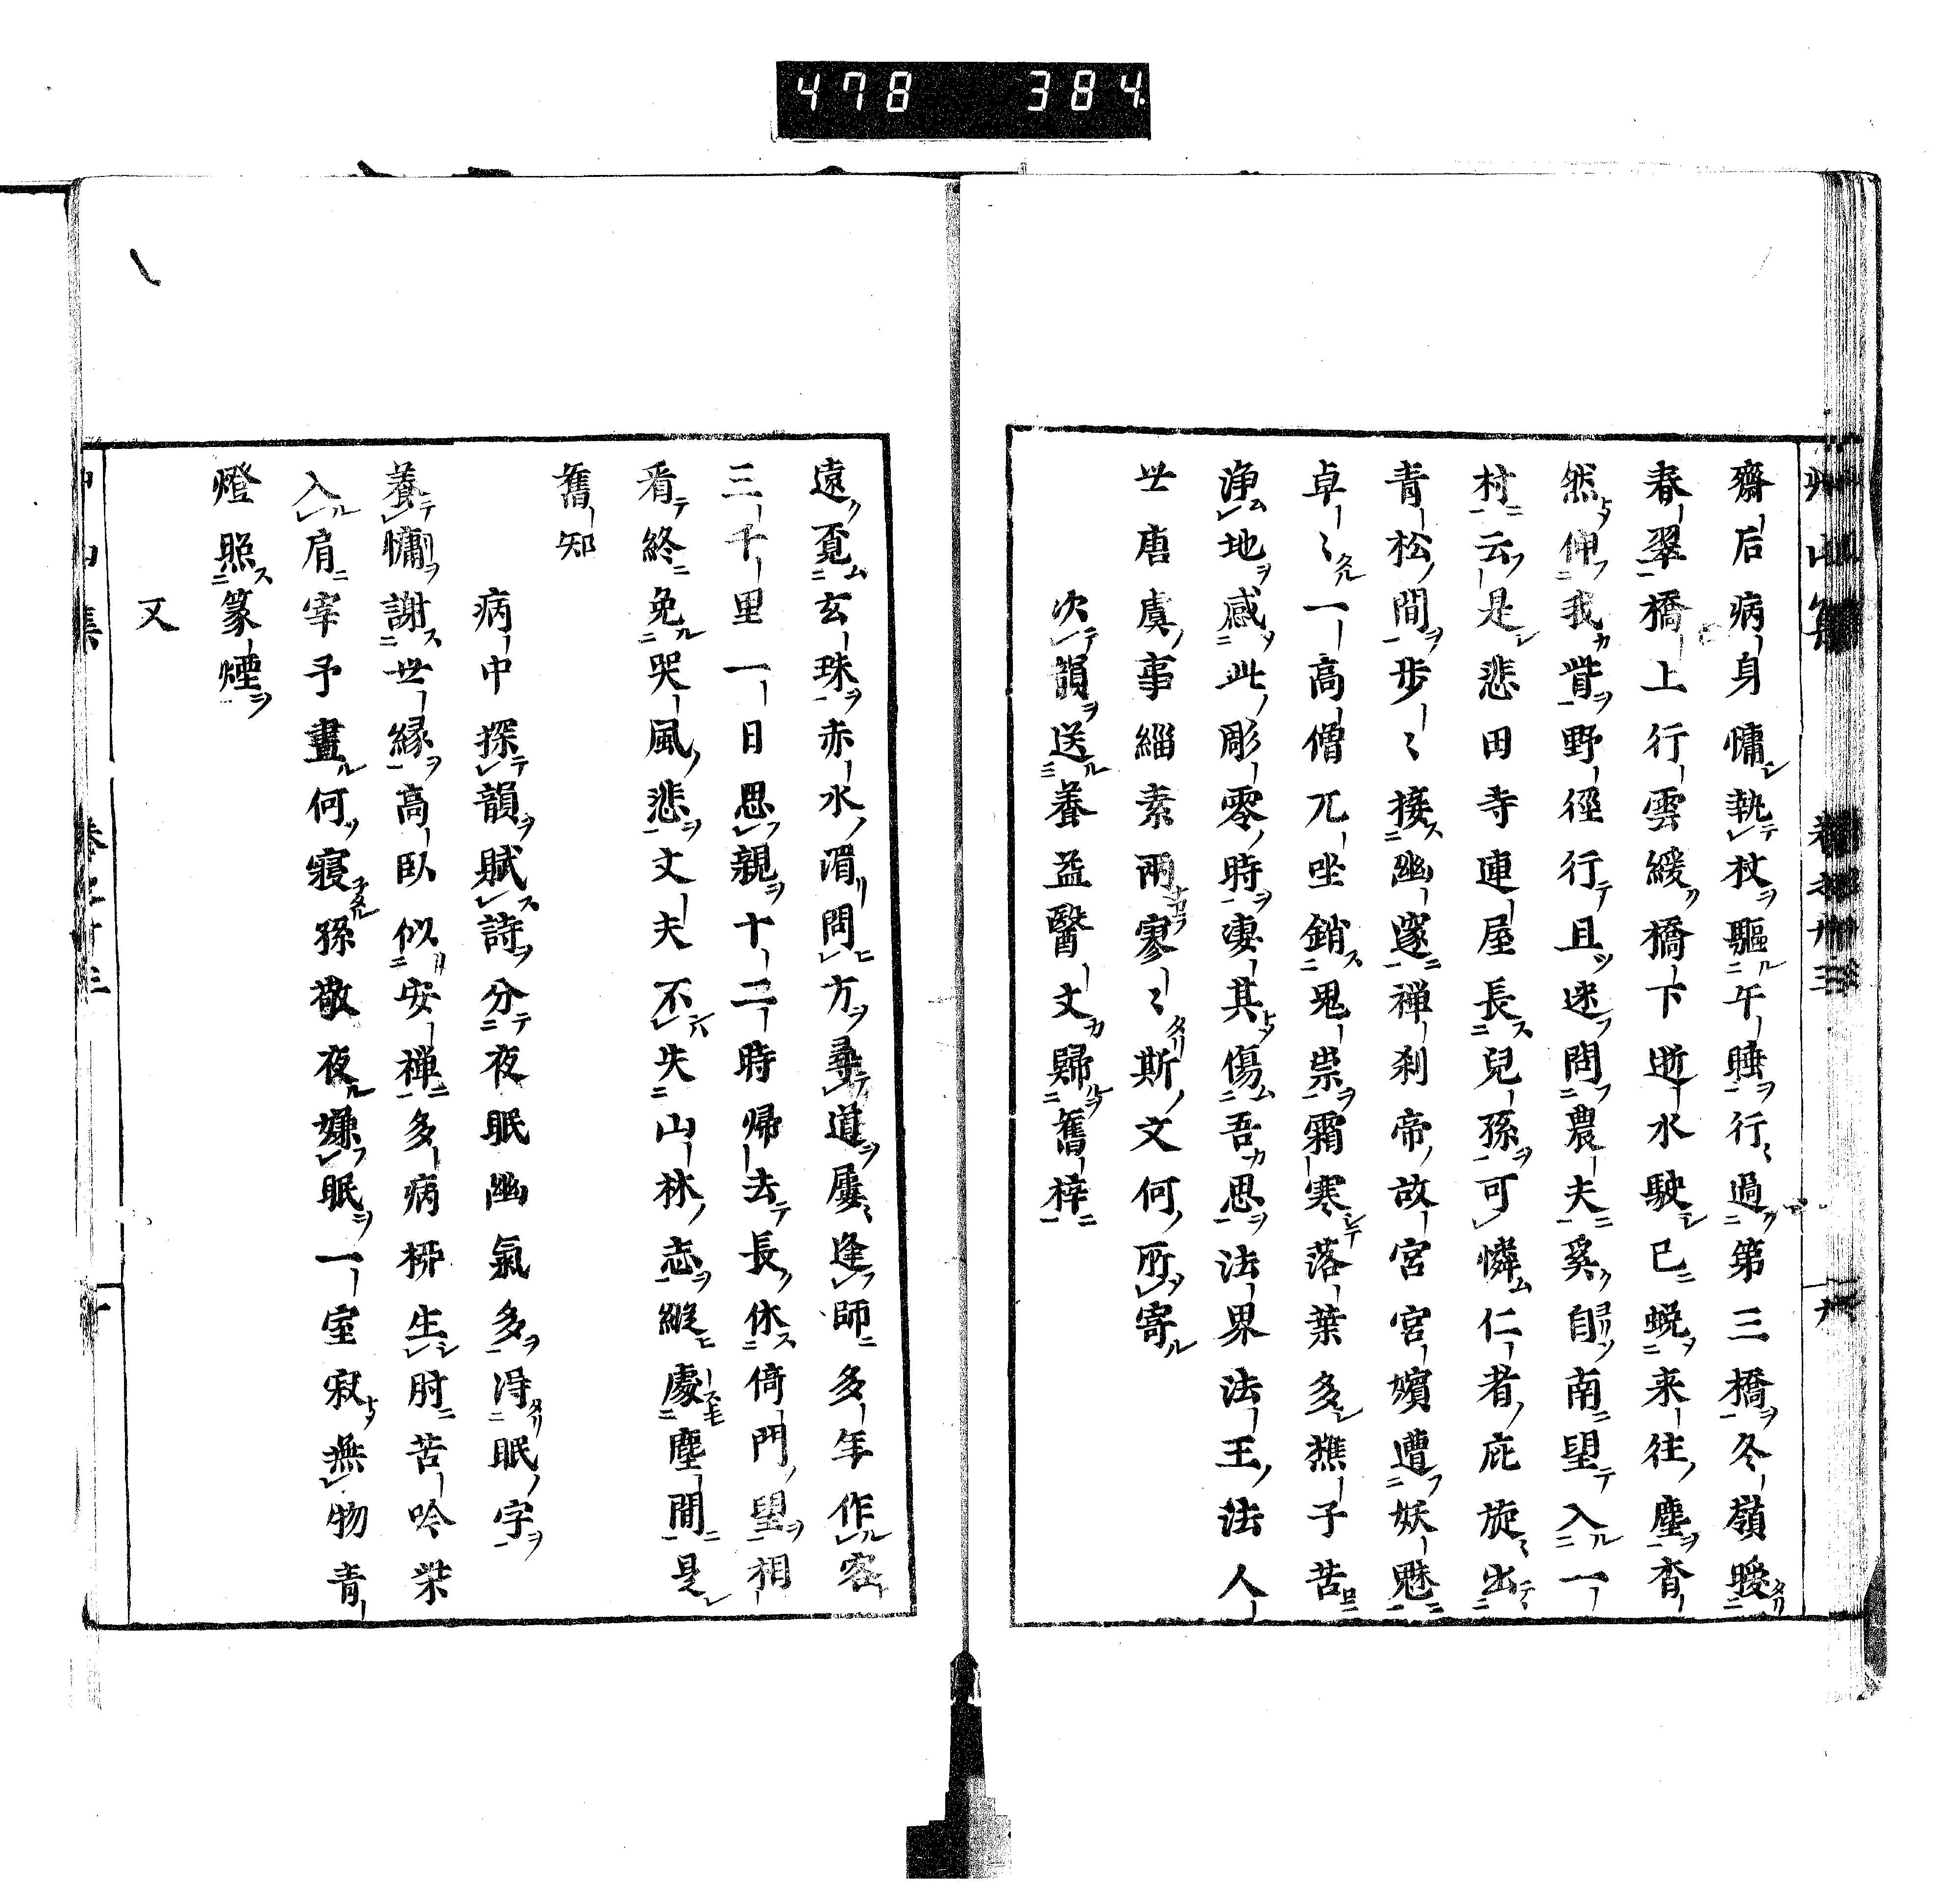 478 384
齋后病身慵執杖驅午睡行過第三橋冬嶺曖
春翠橋上行雲緩橋下逝水駛已蛻来往塵杳
然伸我觜野徑行且迷問農夫奚自南望入一
村云是悲田寺連屋長兒孫可憐仁者庇旋出
青松間歩〻接幽邃禅刹帝故宮宮嬪遭妖魅
卓〻一高僧兀坐銷鬼祟霜寒落葉多樵子苦
浄地感此彫零時凄其傷吾思法界法王法人
世唐虞事緇素兩寥〻斯文何所寄
次韻送養益醫文歸舊梓
遠覓玄珠赤水湄問方尋道屢逢師多年作客
三千里一日思親十二時帰去長休倚門望相
看終免哭風悲丈夫不失山林志縦處塵間是
舊知
病中探韻賦詩分夜眠幽氣多得眠字
養慵謝世縁高臥似安禅多病柳生肘苦吟柴
入肩宰予晝何寢孫敬夜嫌眠一室寂無物青
燈照篆煙
又